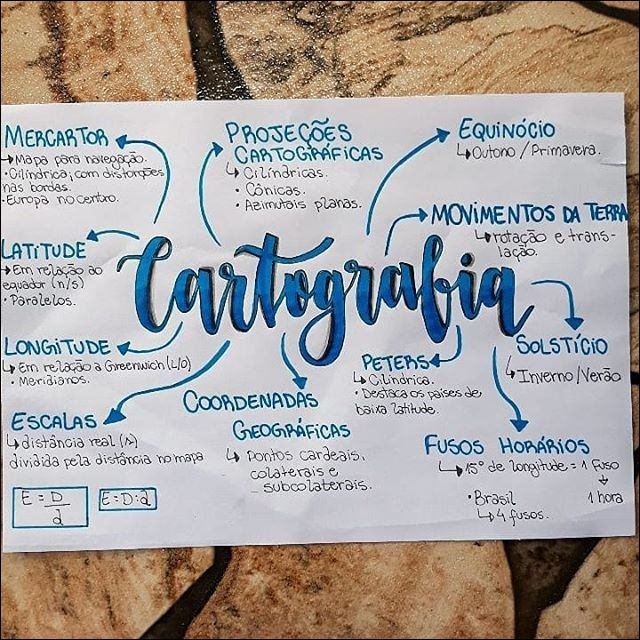 MERCARTOR
→ Mapa para navegação.
• Cilíndrica, com distorções
nas bordas.
• Europa no centro.
PROJEÇÕES
CARTOGRÁFICAS
↳ Cilíndricas.
• Cônicas.
• Azimutais planas.
EQUINÓCIO
↳ Outono / Primavera.
MOVIMENTOS DA TERRA
↳ rotação e trans-
lação.
LATITUDE
→ Em relação ao
equador (n/s)
• Paralelos.
Cartografia
LONGITUDE
↳ Em relação a Greenwich (L/O)
• Meridianos.
SOLSTÍCIO
↳ Inverno/Verão
PETERS
↳ Cilíndrica.
• Destaca os países de
baixa latitude.
ESCALAS
↳ distância real (Δ)
dividida pela distância no mapa
E = D
d
E = D:d
COORDENADAS
GEOGRÁFICAS
↳ Pontos cardeais,
colaterais e
subcolaterais.
FUSOS HORÁRIOS
↳ 15° de longitude = 1 Fuso
↓
1 hora
• Brasil
↳ 4 fusos.